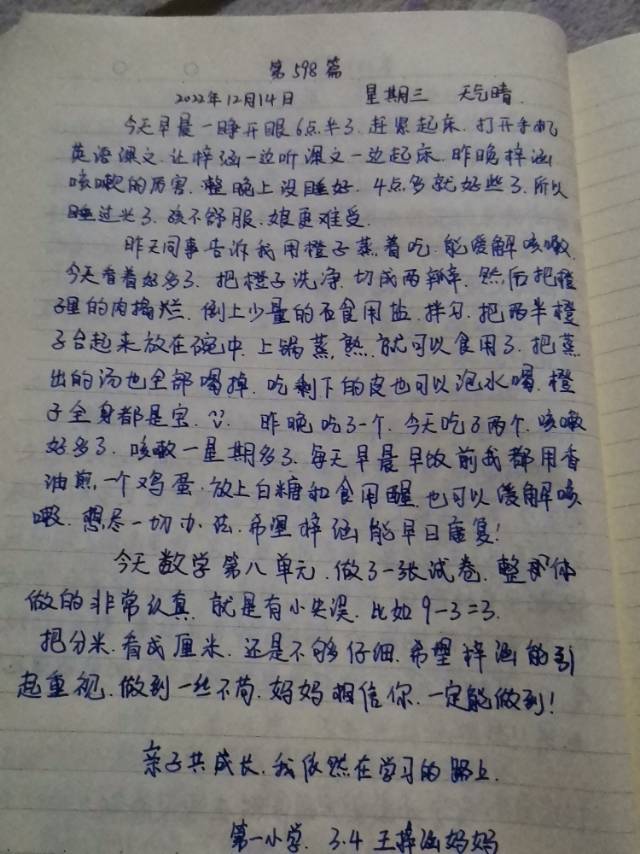 第598篇
2022年12月14日 星期三 天气晴.
今天早晨一睁开眼6点半了.赶紧起床.打开手机
英语课文.让梓涵一边听课文一边起床.昨晚梓涵
咳嗽的厉害.整晚上没睡好.4点多就好些了.所以
睡过头了.孩不舒服.娘更难受.
昨天同事告诉我用橙子蒸着吃.能缓解咳嗽.
今天看着好多了.把橙子洗净.切成两瓣.然后把橙
子里的肉捣烂.倒上少量的石食用盐.拌匀.把两半橙
子合起来放在碗中.上锅蒸,熟.就可以食用了.把蒸
出的汤也全部喝掉.吃剩下的皮也可以泡水喝.橙
子全身都是宝. 昨晚吃了一个.今天吃了两个.咳嗽
好多了.咳嗽一星期多了.每天早晨早饭前我都用香
油煎,一个鸡蛋.放上白糖和食用醋.也可以缓解咳
嗽.想尽一切办法.希望梓涵能早日康复!
今天数学第八单元.做了一张试卷.整体
做的非常认真.就是有小失误.比如9-3=3.
把分米.看成厘米.还是不够仔细.希望梓涵能引
起重视.做到一丝不苟.妈妈相信你.一定能做到!
亲子共成长.我依然在学习的路上.
第一小学.3.4王梓涵妈妈